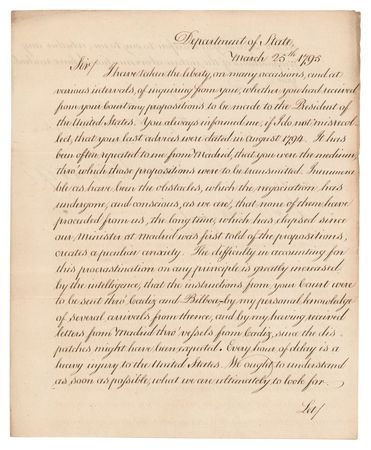 Department of State,
March 25th 1795
Sir/
I have taken the liberty, on many occasions, and at
various intervals, of inquiring from you, whether you had received
from your Court any propositions to be made to the President of
the United States. You always informed me, if I do not misrecol-
lect, that your last advices were dated in August 1794. It has
been often repeated to me from Madrid, that you were the medium,
thro' which those propositions were to be transmitted. Innumera-
ble as have been the obstacles, which the negociation has
undergone, and conscious, as we are, that none of them have
proceeded from us, the long time, which has elapsed since
our Minister at Madrid was first told of the propositions,
creates a peculiar anxiety. The difficulty in accounting for
this procrastination on any principle is greatly increased,
by the intelligence, that the instructions from your Court were
to be sent thro' Cadiz and Bilboa, by my personal knowledge
of several arrivals from thence, and by my having received
letters from Madrid thro' vessels from Cadiz, since the dis-
patches might have been expected. Every hour of delay is a
heavy injury to the United States. We ought to understand
as soon as possible, what we are ultimately to look for.
Let/